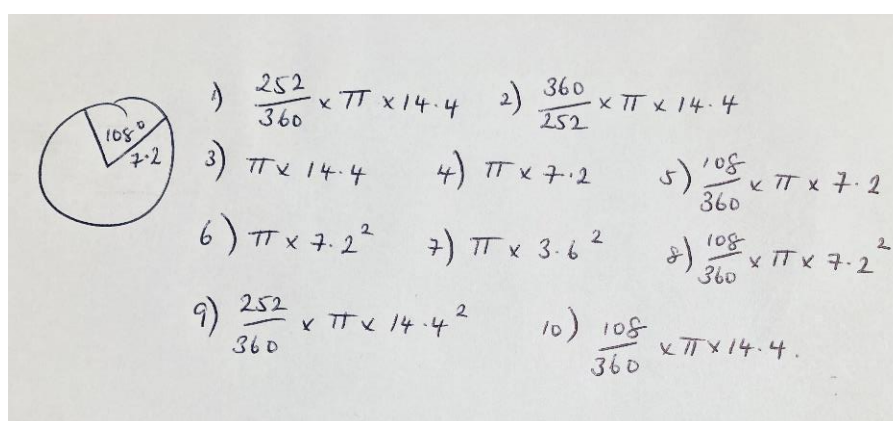 108°
7.2
1) 252/360 × π × 14.4 2) 360/252 × π × 14.4
3) π × 14.4 4) π × 7.2 5) 108/360 × π × 7.2
6) π × 7.2² 7) π × 3.6² 8) 108/360 × π × 7.2²
9) 252/360 × π × 14.4² 10) 108/360 × π × 14.4.